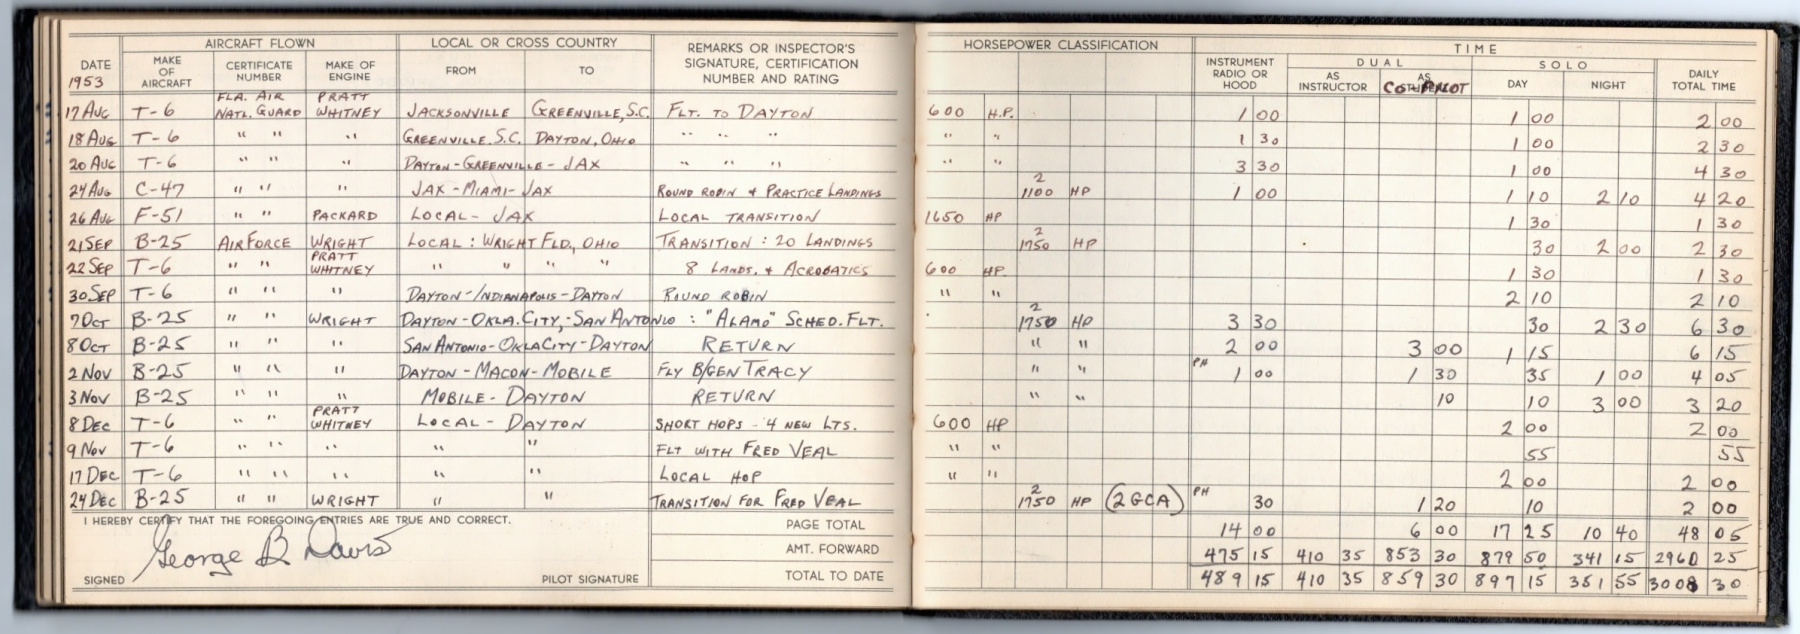 AIRCRAFT FLOWN LOCAL OR CROSS COUNTRY REMARKS OR INSPECTOR'S SIGNATURE, CERTIFICATION NUMBER AND RATING HORSEPOWER CLASSIFICATION TIME
DATE 1953 MAKE OF AIRCRAFT CERTIFICATE NUMBER MAKE OF ENGINE FROM TO INSTRUMENT RADIO OR HOOD DUAL AS INSTRUCTOR AS CO-PILOT SOLO DAY NIGHT DAILY TOTAL TIME
17 AUG T-6 FLA. AIR NATL. GUARD PRATT WHITNEY JACKSONVILLE GREENVILLE, S.C. FLT. TO DAYTON 600 H.P. 1 00 1 00 2 00
18 AUG T-6 " " " GREENVILLE. S.C. DAYTON, OHIO " " " " " 1 30 1 00 2 30
20 AUG T-6 " " " DAYTON-GREENVILLE-JAX " " " " " 3 30 1 00 4 30
24 AUG C-47 " " " JAX-MIAMI-JAX ROUND ROBIN & PRACTICE LANDINGS 2 1100 HP 1 00 1 10 2 10 4 20
26 AUG F-51 " " PACKARD LOCAL- JAX LOCAL TRANSITION 1650 HP 1 30 1 30
21 SEP B-25 AIR FORCE WRIGHT LOCAL: WRIGHT FLD., OHIO TRANSITION: 20 LANDINGS 2 1750 HP 30 2 00 2 30
22 SEP T-6 " " PRATT WHITNEY " " " " 8 LANDS. & ACROBATICS 600 HP. 1 30 1 30
30 SEP T-6 " " " DAYTON-INDIANAPOLIS-DAYTON ROUND ROBIN " " 2 10 2 10
7 OCT B-25 " " WRIGHT DAYTON-OKLA. CITY,-SAN ANTONIO : "ALAMO" SCHED. FLT. 2 1750 HP 3 30 30 2 30 6 30
8 OCT B-25 " " " SAN ANTONIO-OKLA CITY-DAYTON RETURN " " 2 00 3 00 1 15 6 15
2 NOV B-25 " " " DAYTON-MACON-MOBILE FLY B/GEN TRACY " " PH 1 00 1 30 35 1 00 4 05
3 NOV B-25 " " " MOBILE-DAYTON RETURN " " 10 10 3 00 3 20
8 DEC T-6 " " PRATT WHITNEY LOCAL- DAYTON SHORT HOPS - 4 NEW LTS. 600 HP 2 00 2 00
9 NOV T-6 " " " " " FLT WITH FRED VEAL " " 55 55
17 DEC T-6 " " " " " LOCAL HOP " " 2 00 2 00
24 DEC B-25 " " WRIGHT " " TRANSITION FOR FRED VEAL 2 1750 HP (2 GCA) PH 30 1 20 10 2 00
I HEREBY CERTIFY THAT THE FOREGOING ENTRIES ARE TRUE AND CORRECT. PAGE TOTAL 14 00 6 00 17 25 10 40 48 05
George B Davis AMT. FORWARD 475 15 410 35 853 30 879 50 341 15 2960 25
SIGNED PILOT SIGNATURE TOTAL TO DATE 489 15 410 35 859 30 897 15 351 55 3008 30